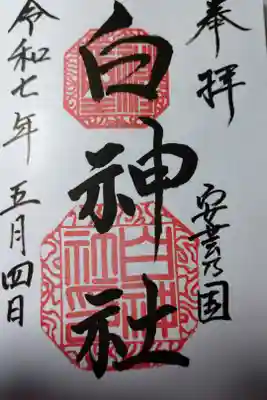 奉拝
安芸乃国
白神社
令和七年 五月四日